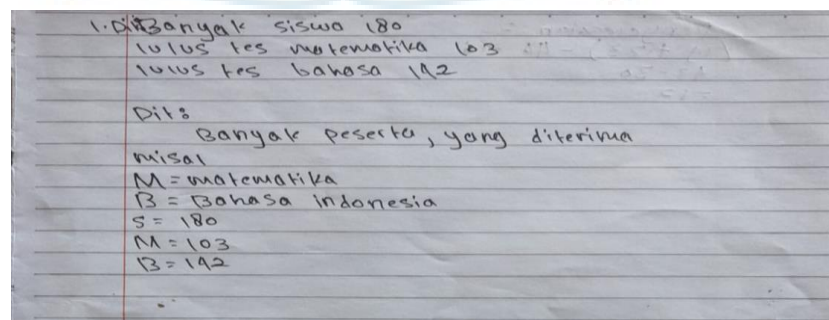 1. Dit Banyak siswa 180
lulus tes matematika 103
lulus tes bahasa 142
Dit:
Banyak peserta, yang diterima
misal
M = matematika
B = Bahasa indonesia
S = 180
M = 103
B = 142